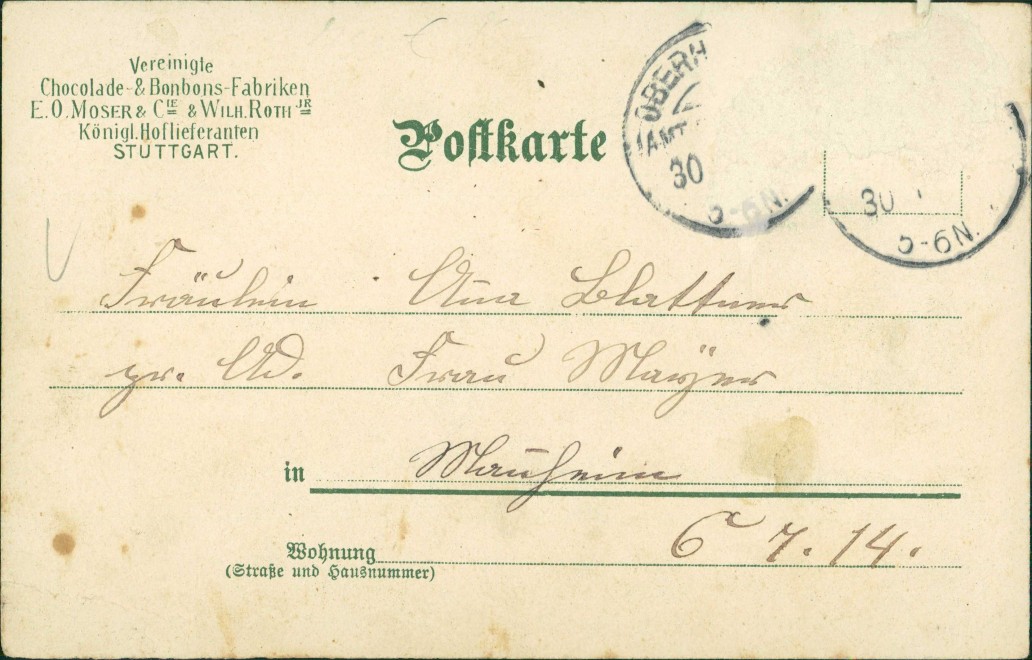 Vereinigte
Chocolade- & Bonbons-Fabriken
E. O. MOSER & CIE & WILH. ROTH JR
Königl. Hoflieferanten
STUTTGART.
Postkarte
OBERH
(AMT
30
5-6N.
30
5-6N.
Fräulein Anna Blattner
pr. Ad. Frau Mayer
in Mannheim
Wohnung C 7. 14.
(Straße und Hausnummer)